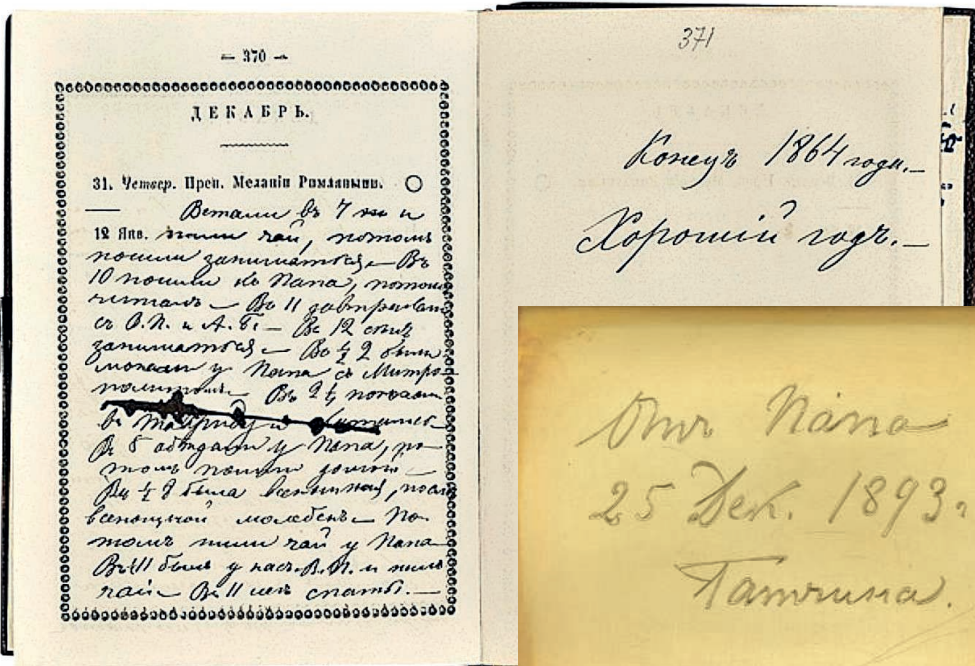 — 370 —
ДЕКАБРЬ.
31. Четвер. Преп. Меланіи Римляныни.
Встали въ 7 и
12 Янв. пили чай, потомъ
пошли заниматься — Въ
10 пошли къ Папа, потомъ
читалъ — Въ 11 завтракали
съ В.П. и А.Б. — Въ 12 опять
заниматься — Во ½ 2 были
у Папа съ Митро-
политомъ — Въ 2½
въ
В 5 обѣдали у Папа, по-
томъ пошли домой —
Въ ½ была всенощная, послѣ
всенощной молебенъ — По-
томъ пили чай у Папа
В. 11 былъ у насъ В.П. и пилъ
чай — В. 11 спать. —
371
Конецъ 1864 года. —
Хорошій годъ. —
Отъ Папа
25 Дек. 1893 г
Гатчина.